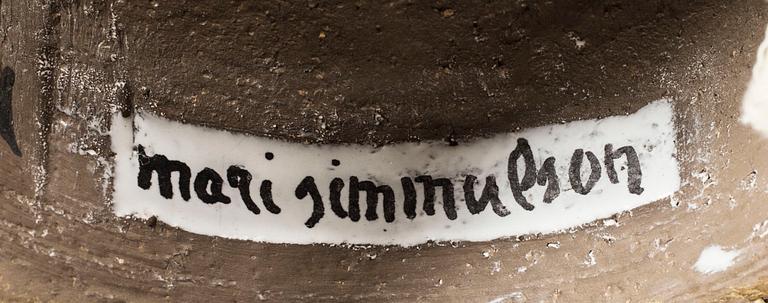 mari simmulson